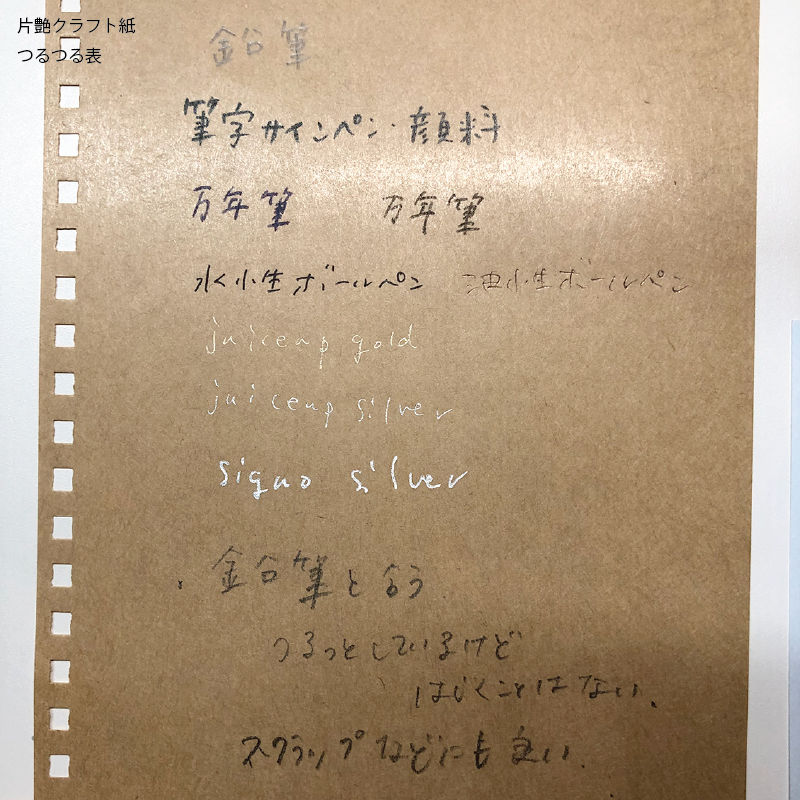 片艶クラフト紙
つるつる表
鉛筆
筆字サインペン・顔料
万年筆 万年筆
水性ボールペン 油性ボールペン
juiceup gold
juiceup silver
signo silver
鉛筆と合う
つるっとしているけど
はじくことはない。
スクラップなどにも良い。